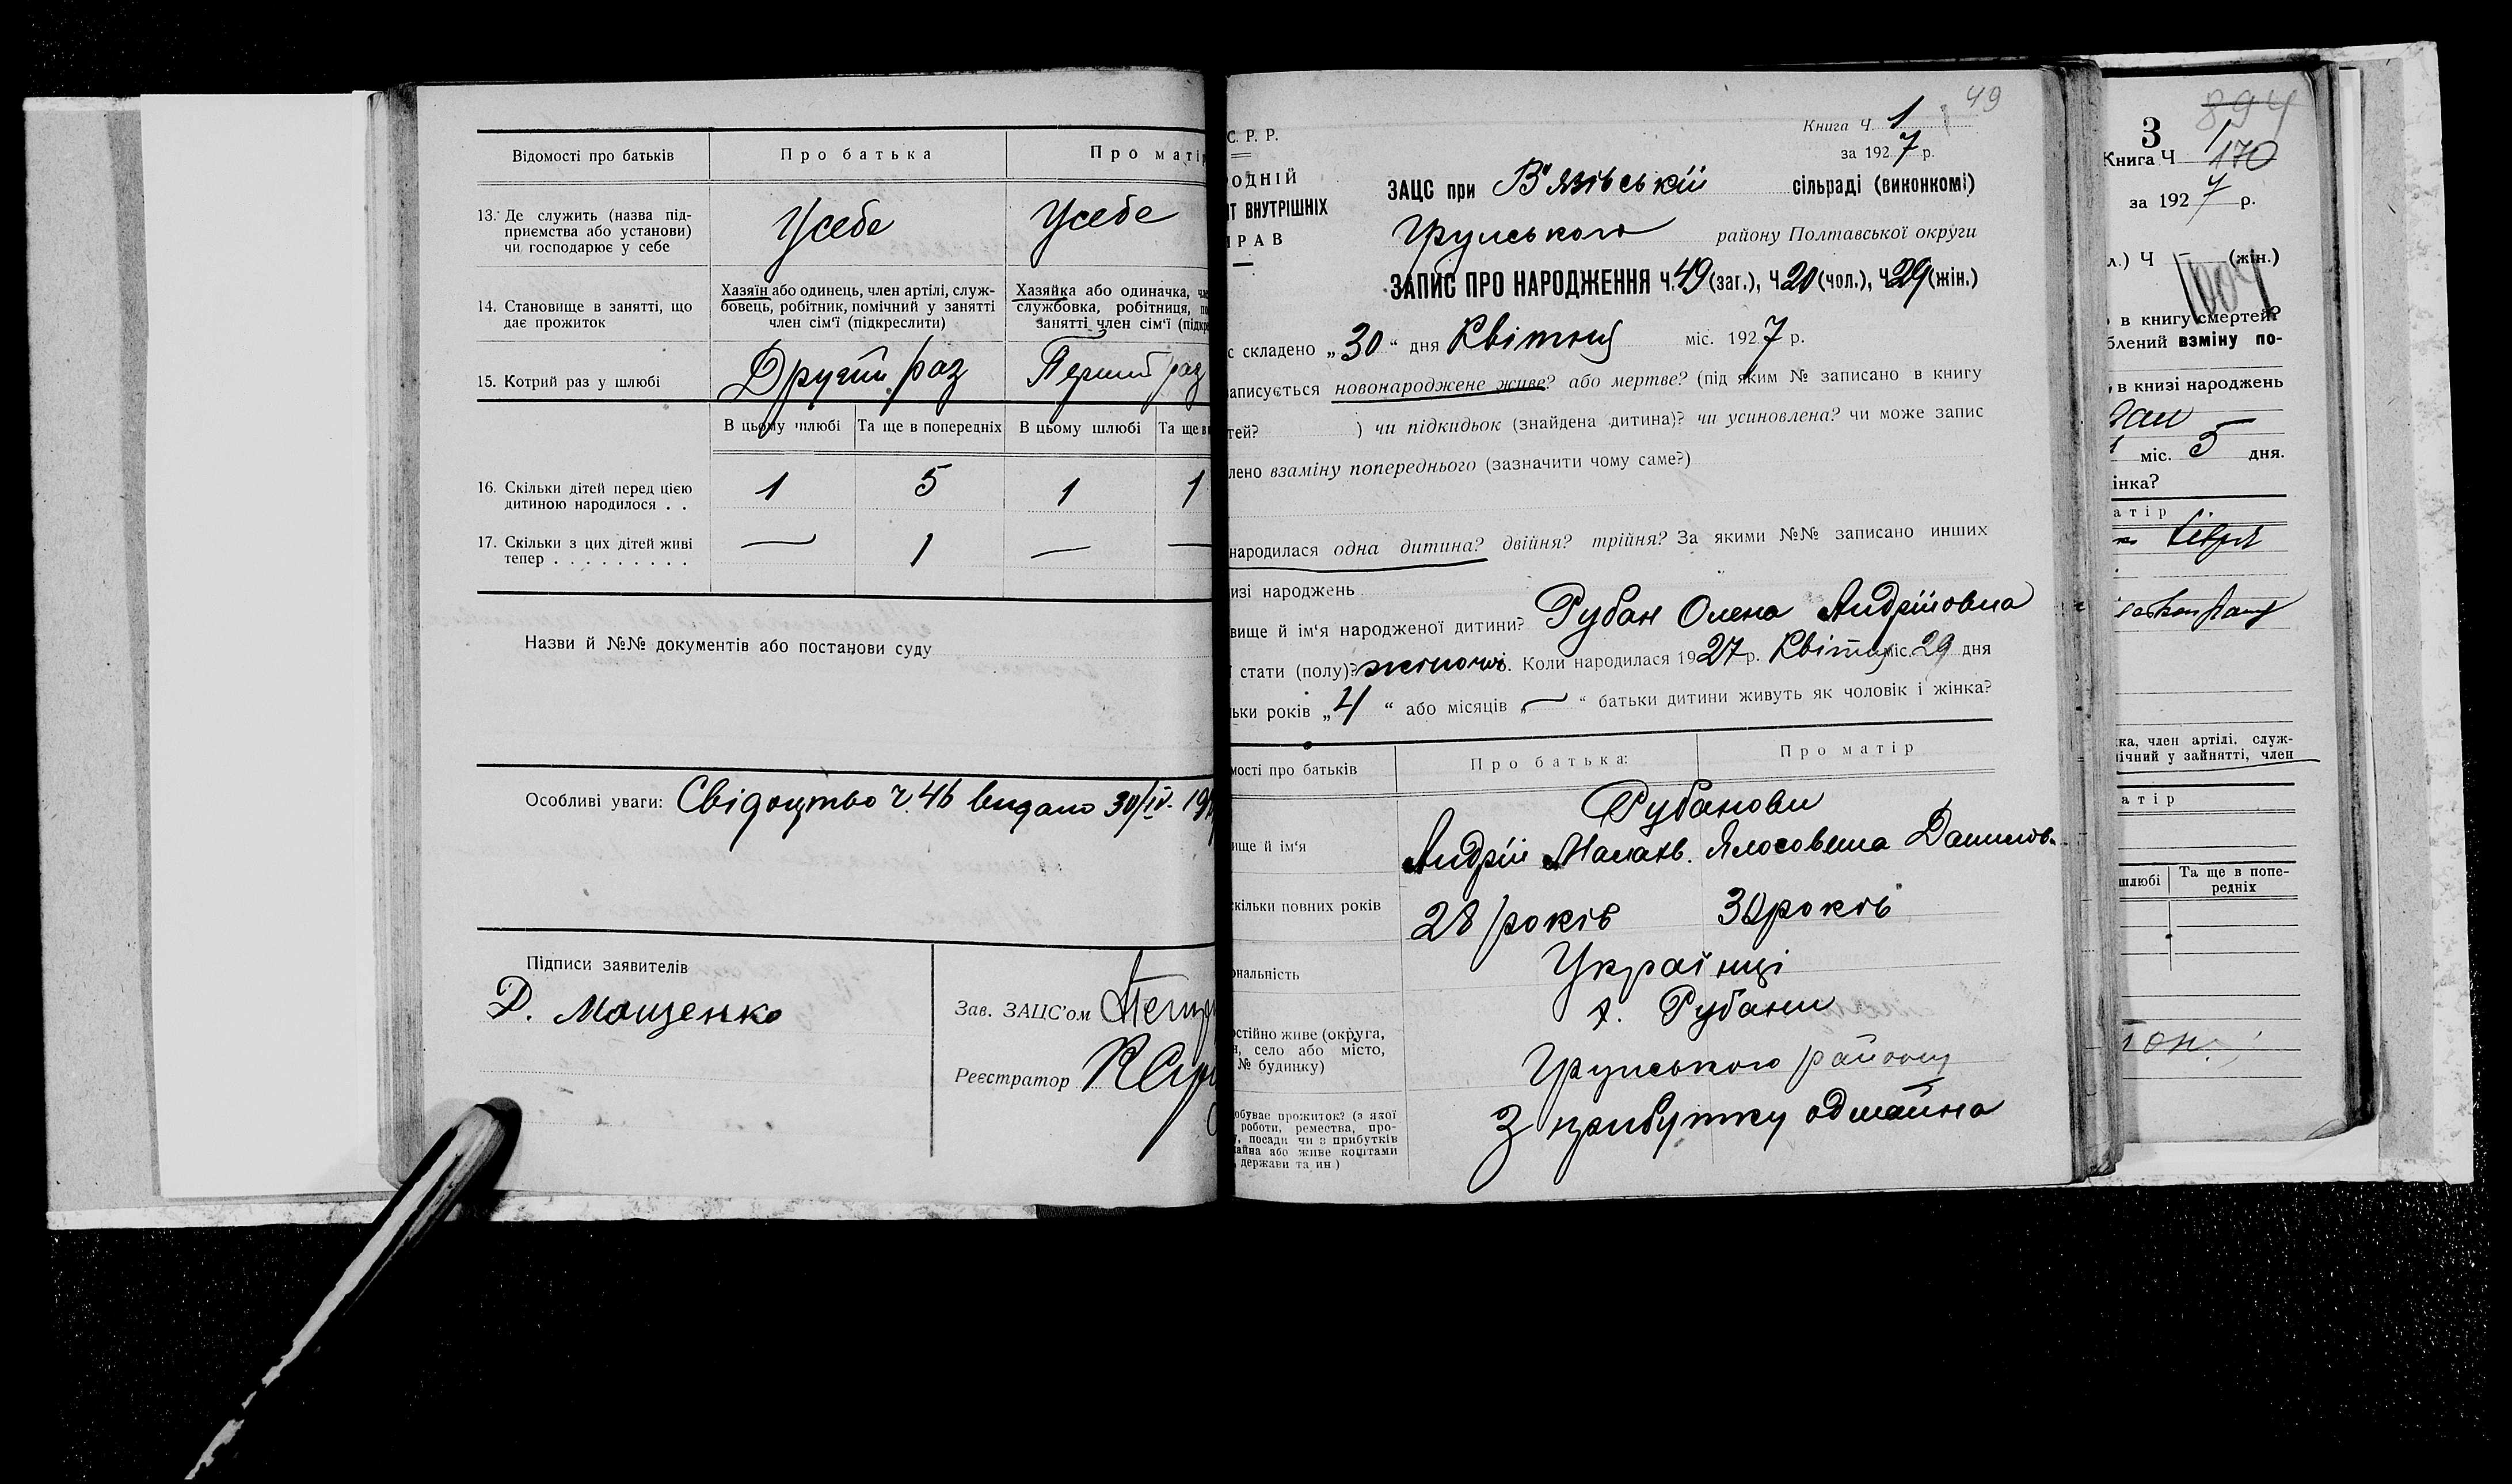 Відомості про батьків
Про батька
Про матір
13. Де служить (назва під-
приємства або установи)
чи господарює у себе
Усебе
Усебе
14. Становище в занятті, що
дає прожиток
Хазяїн або одинець, член артілі, служ-
бовець, робітник, помічний у занятті
член сім'ї (підкреслити)
Хазяйка або одиначка,
службовка, робітниця,
занятті член сім'ї
15. Котрий раз у шлюбі
Другий раз
Перший раз
В цьому шлюбі
Та ще в попередніх
В цьому шлюбі
Та ще в
16. Скільки дітей перед цією
дитиною народилося . .
1
5
1
1
17. Скільки з цих дітей живі
тепер . . . . . . . . .
—
1
—
—
Назви й №№ документів або постанови суду
Особливі уваги: Свідоцтво ч. 46 видано 30/IV. 19
Підписи заявителів
Д. Мощенко
Зав. ЗАЦС'ом
Реєстратор
49
С. Р. Р.
ОДНІЙ
Т ВНУТРІШНІХ
РАВ
Книга Ч. 1
за 1927 р.
ЗАЦС при В'язівській сільраді (виконкомі)
Грунського району Полтавської округи
ЗАПИС ПРО НАРОДЖЕННЯ ч. 49 (заг.), ч 20 (чол.), ч 29 (жін.)
с складено „30" дня Квітня міс. 1927 р.
аписується новонароджене живе? або мертве? (під яким № записано в книгу
тей? ) чи підкидьок (знайдена дитина)? чи усиновлена? чи може запис
лено взаміну попереднього (зазначити чому саме?)
народилася одна дитина? двійня? трійня? За якими №№ записано инших
изі народжень
вище й ім'я народженої дитини? Рубан Олена Андрійовна
ї стати (полу)? жіночої. Коли народилася 1927 р. Квітня міс. 29 дня
ьки років „4" або місяців „—" батьки дитини живуть як чоловік і жінка?
мості про батьків
Про батька:
Про матір
Рубанови
ище й ім'я
Андрій Малахв. Ялосовета Данилов.
скільки повних років
28 років
30 років
ональність
Українці
х. Рубани
остійно живе (округа,
н, село або місто,
№ будинку)
Грунського району
обуває прожиток? (з якої
роботи, ремества, про-
у, посади чи з прибутків
майна або живе коштами
держави та ин)
З прибутку од майна
894
3
Книга Ч 1
170
за 1927 р.
л.) Ч — (жін.)
1004
в книгу смертей?
блений взміну по-
в книзі народжень
міс. 5 дня.
інка?
атір
ка, член артілі, служ-
мічний у зайнятті, член
атір
шлюбі
Та ще в попе-
редніх